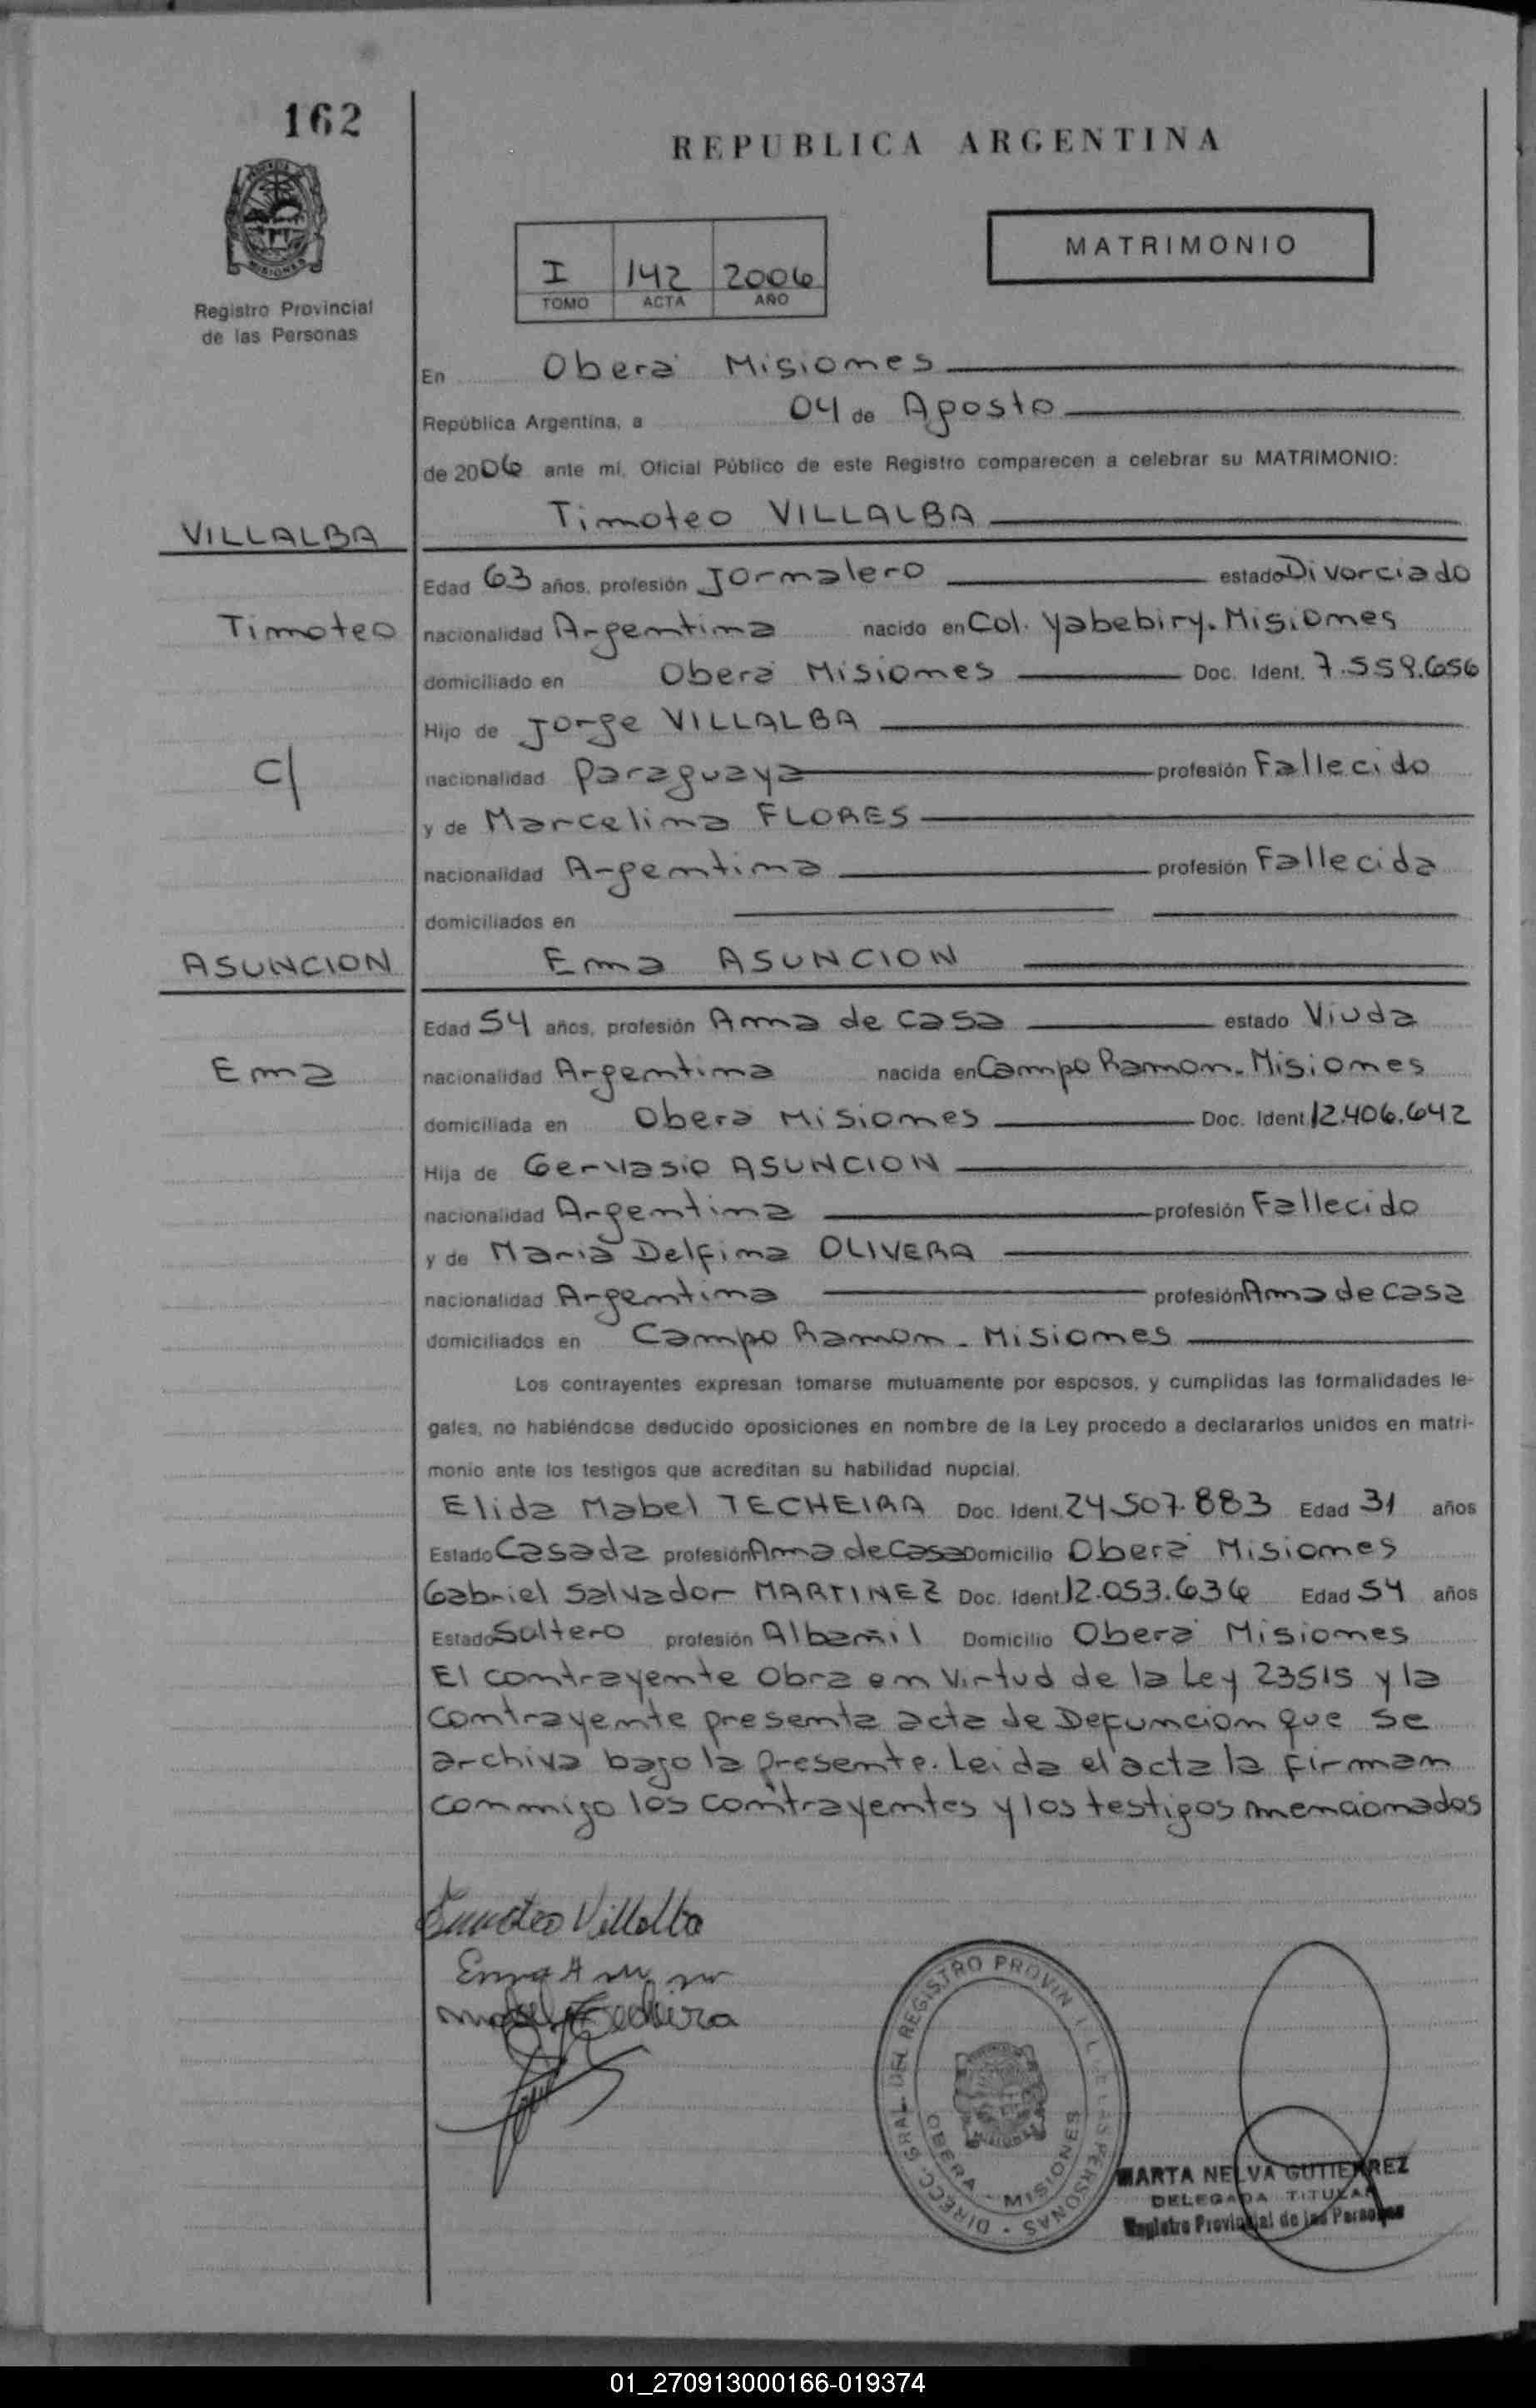 162
REPUBLICA ARGENTINA
MISIONES
Registro Provincial
de las Personas
I 142 2006
TOMO ACTA AÑO
MATRIMONIO
En Oberá Misiones
República Argentina, a 04 de Agosto
de 2006 ante mí, Oficial Público de este Registro comparecen a celebrar su MATRIMONIO:
VILLALBA
Timoteo VILLALBA
Edad 63 años, profesión Jornalero estado Divorciado
Timoteo
nacionalidad Argentina nacido en Col. Yabebiry. Misiones
domiciliado en Oberá Misiones Doc. Ident. 7.559.656
Hijo de Jorge VILLALBA
C/
nacionalidad Paraguaya profesión Fallecido
y de Marcelina FLORES
nacionalidad Argentina profesión Fallecida
domiciliados en
ASUNCION
Ema ASUNCION
Edad 54 años, profesión Ama de Casa estado Viuda
Ema
nacionalidad Argentina nacida en Campo Ramon. Misiones
domiciliada en Oberá Misiones Doc. Ident. 12.406.642
Hija de Gervasio ASUNCION
nacionalidad Argentina profesión Fallecido
y de Maria Delfina OLIVERA
nacionalidad Argentina profesión Ama de Casa
domiciliados en Campo Ramon - Misiones
Los contrayentes expresan tomarse mutuamente por esposos, y cumplidas las formalidades le-
gales, no habiéndose deducido oposiciones en nombre de la Ley procedo a declararlos unidos en matri-
monio ante los testigos que acreditan su habilidad nupcial.
Elida Mabel TECHEIRA Doc. Ident. 24.507.883 Edad 31 años
Estado Casada profesión Ama de Casa Domicilio Oberá Misiones
Gabriel Salvador MARTINEZ Doc. Ident. 12.053.636 Edad 54 años
Estado Soltero profesión Albañil Domicilio Oberá Misiones
El contrayente Obra en Virtud de la Ley 23515 y la
Contrayente presenta acta de Defuncion que se
archiva bajo la presente. Leida el acta la firman
conmigo los contrayentes y los testigos mencionados
Timoteo Villalba
Ema
Mabel Techeira
DIRECC. GRAL. DEL REGISTRO PROVINCIAL DE LAS PERSONAS
OBERA - MISIONES
MARTA NELVA GUTIERREZ
DELEGADA TITULAR
Registro Provincial de las Personas
01_270913000166-019374